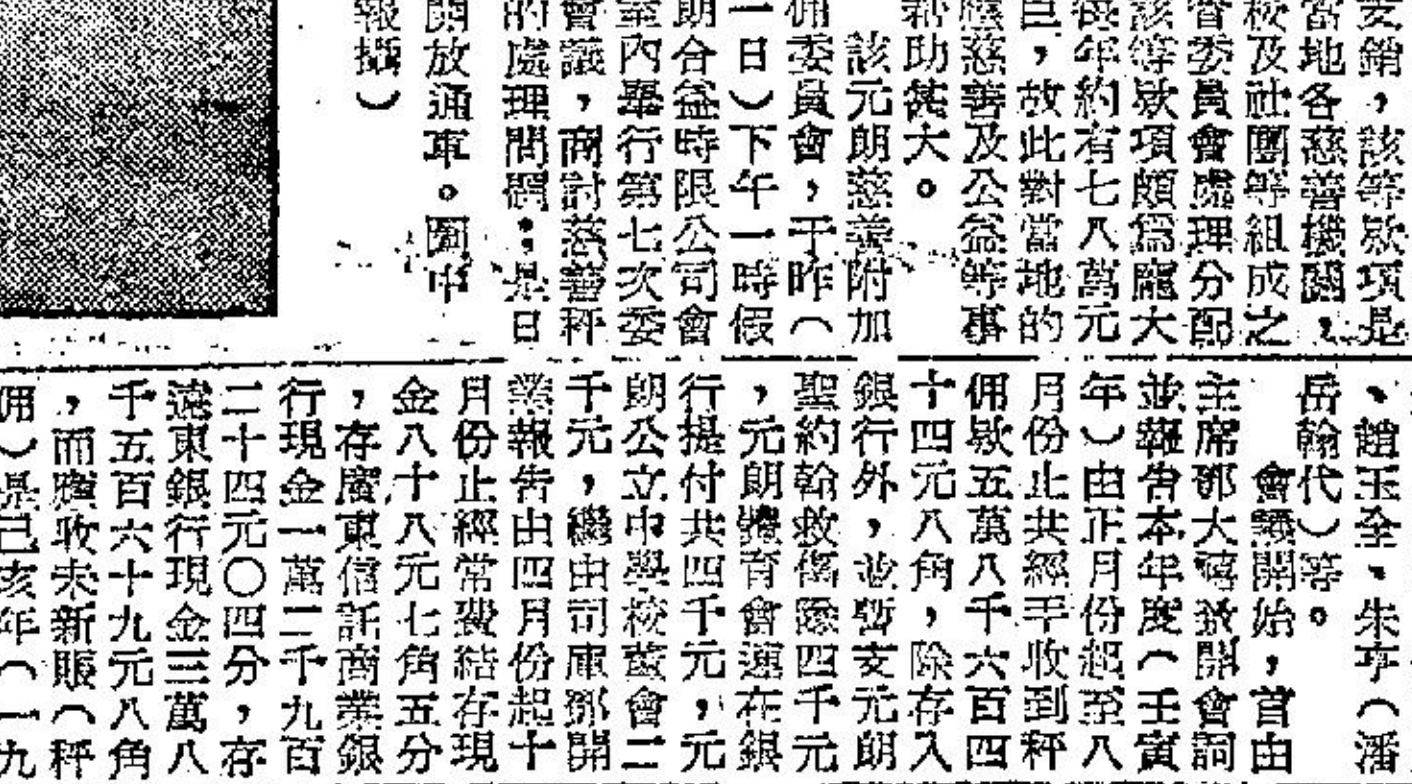 支銷，該等欵項是
當地各慈善機關，
校及社團等組成之
委員會處理分配
該等欵項頗爲龐大
每年約有七八萬元
巨，故此對當地的
慈善及公益等事
助甚大。
該元朗慈善附加
佣委員會，于昨（
一日）下午一時假
朗合益時限公司會
室內舉行第七次委
會議，商討慈善秤
的處理問題；是日
開放通車。圖中
報攝）
、趙玉全、朱亨（潘
岳翰代）等。
會議開始，首由
主席鄧大禧致開會詞
並報告本年度（壬寅
年）由正月份起至八
月份止共經手收到秤
佣欵五萬八千六百四
十四元八角，除存入
銀行外，並暫支元朗
聖約翰救傷隊四千元
，元朗體育會運在銀
行提付共四千元，元
朗公立中學校董會二
千元，繼由司庫鄧開
業報告由四月份起十
月份止經常費結存現
金八十八元七角五分
，存廣東信託商業銀
行現金一萬二千九百
二十四元〇四分，存
遠東銀行現金三萬八
千五百六十九元八角
，而應收未新賬（秤
佣）是己亥年（一九